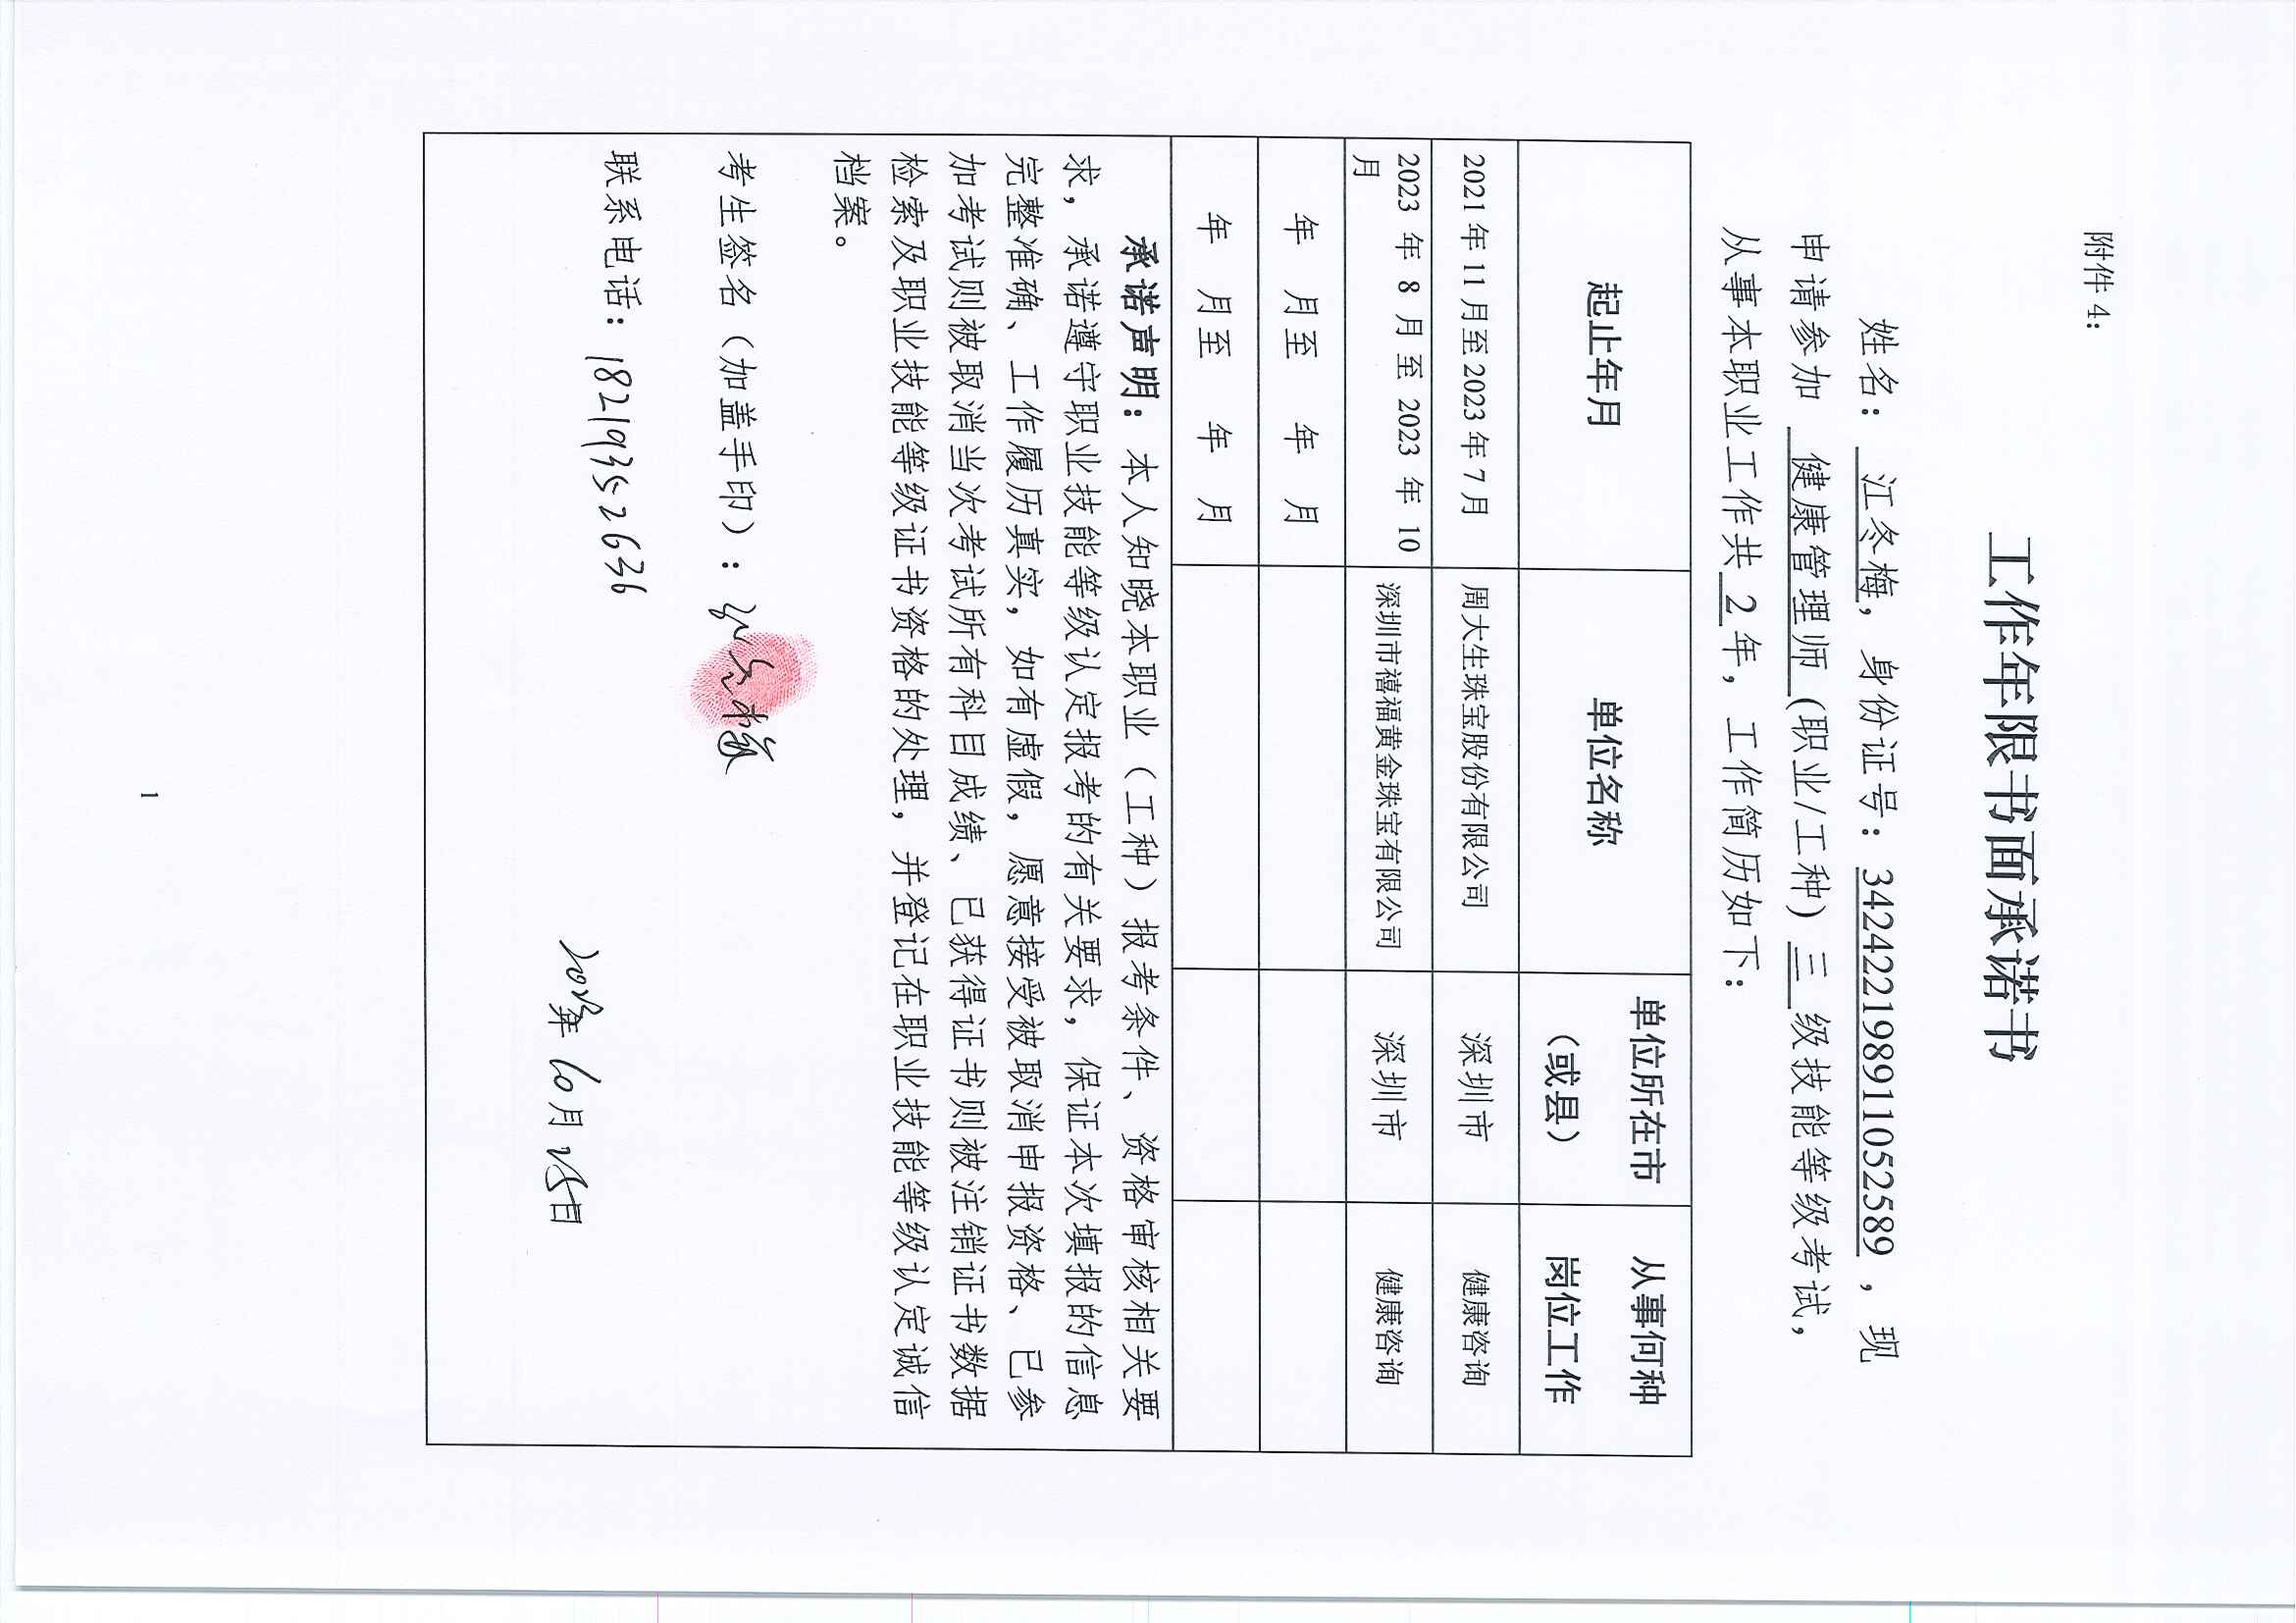 附件 4：
工作年限书面承诺书
姓名： 江冬梅，身份证号：342422198911052589 ，现
申请参加 健康管理师 (职业/工种) 三 级技能等级考试，
从事本职业工作共 2 年，工作简历如下：
起止年月 单位名称 单位所在市（或县） 从事何种岗位工作
2021 年 11 月至 2023 年 7 月 周大生珠宝股份有限公司 深圳市 健康咨询
2023 年 8 月至 2023 年 10 月 深圳市禧福黄金珠宝有限公司 深圳市 健康咨询
年 月至 年 月
年 月至 年 月
承诺声明：本人知晓本职业（工种）报考条件、资格审核相关要
求，承诺遵守职业技能等级认定报考的有关要求，保证本次填报的信息
完整准确、工作履历真实，如有虚假，愿意接受被取消申报资格、已参
加考试则被取消当次考试所有科目成绩、已获得证书则被注销证书数据
检索及职业技能等级证书资格的处理，并登记在职业技能等级认定诚信
档案。
考生签名（加盖手印）：江冬梅
联系电话：18219352636
2023年 10月 25日
1